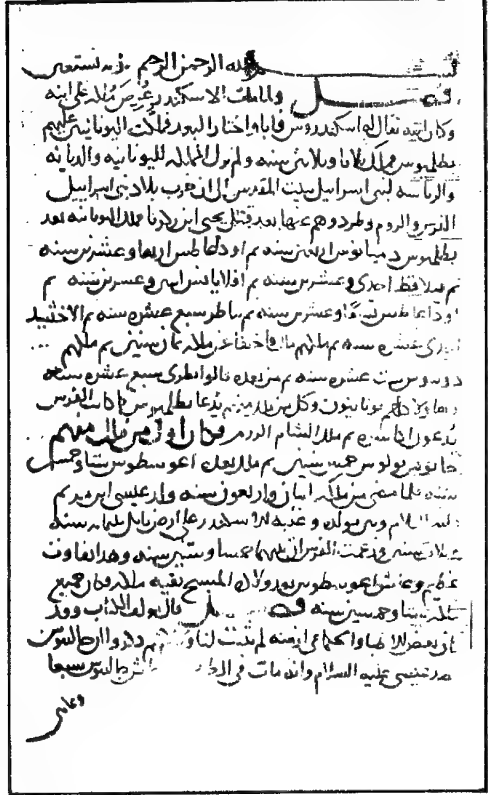 بسم الله الرحمن الرحيم وبه نستعين
فصل ولما مات الاسكندر عرض ملكه على ابنه
وكان ابنه يقال له اسكندروس فابا واختار التعبد فملكت اليونانيين عليهم
بطلميوس فملك ثمانيا وثلاثين سنه ولم يزل المملكه لليونانيه والديانه
والرئاسه لبني اسرائيل ببيت المقدس الى ان خرب بلاد بني اسرائيل
الفرس والروم وطردوهم عنها بعد قتل يحيى ابن زكريا فملك اليونانيه بعد
بطلميوس اربعين سنه ثم اوداعاطس اربعا وعشرين سنه
ثم احدى وعشرين سنه ثم وعشرين سنه ثم
اوداعاطس وعشرين سنه ثم ساطر سبع عشره سنه ثم الاخشيد
احدى عشره سنه ثم ملكهم ملك ملكه ثمان سنين ثم ملكهم
دونوس ست عشره سنه ثم من بعده قالوابطرى سبع عشره سنه
كلهم يونانيون وكل من ملك منهم يدعا بطلميوس كما كانت الفرس
يدعون اكاسره ثم ملك الشام الروم وكان اول من ملك منهم
جايوس يولوس خمس سنين ثم ملك بعده اغوسطوس ستا وخمسين
سنه فلما مضى من ملكه اثنان واربعون سنه ولد عيسى ابن مريم
عليه السلام وبين مولده وغلبة الاسكندر على ارض بابل ثلثمايه سنه
وثلاث سنين وزعمت الفرس ان بينهما خمسا وستين سنه وهذا تفاوت
عظيم وعاش اغوسطوس بعد ولادة المسيح بقيه ملكه فكان جميع
ملكه ستا وخمسين سنه فصل قال مولف الكتاب وقد
كان بعض الاطبا والحكما في ازمنه لم تثبت لنا ذكروا ان جالينوس
بعد عيسى عليه السلام وانه مات في جالينوس سبعا
وعاش